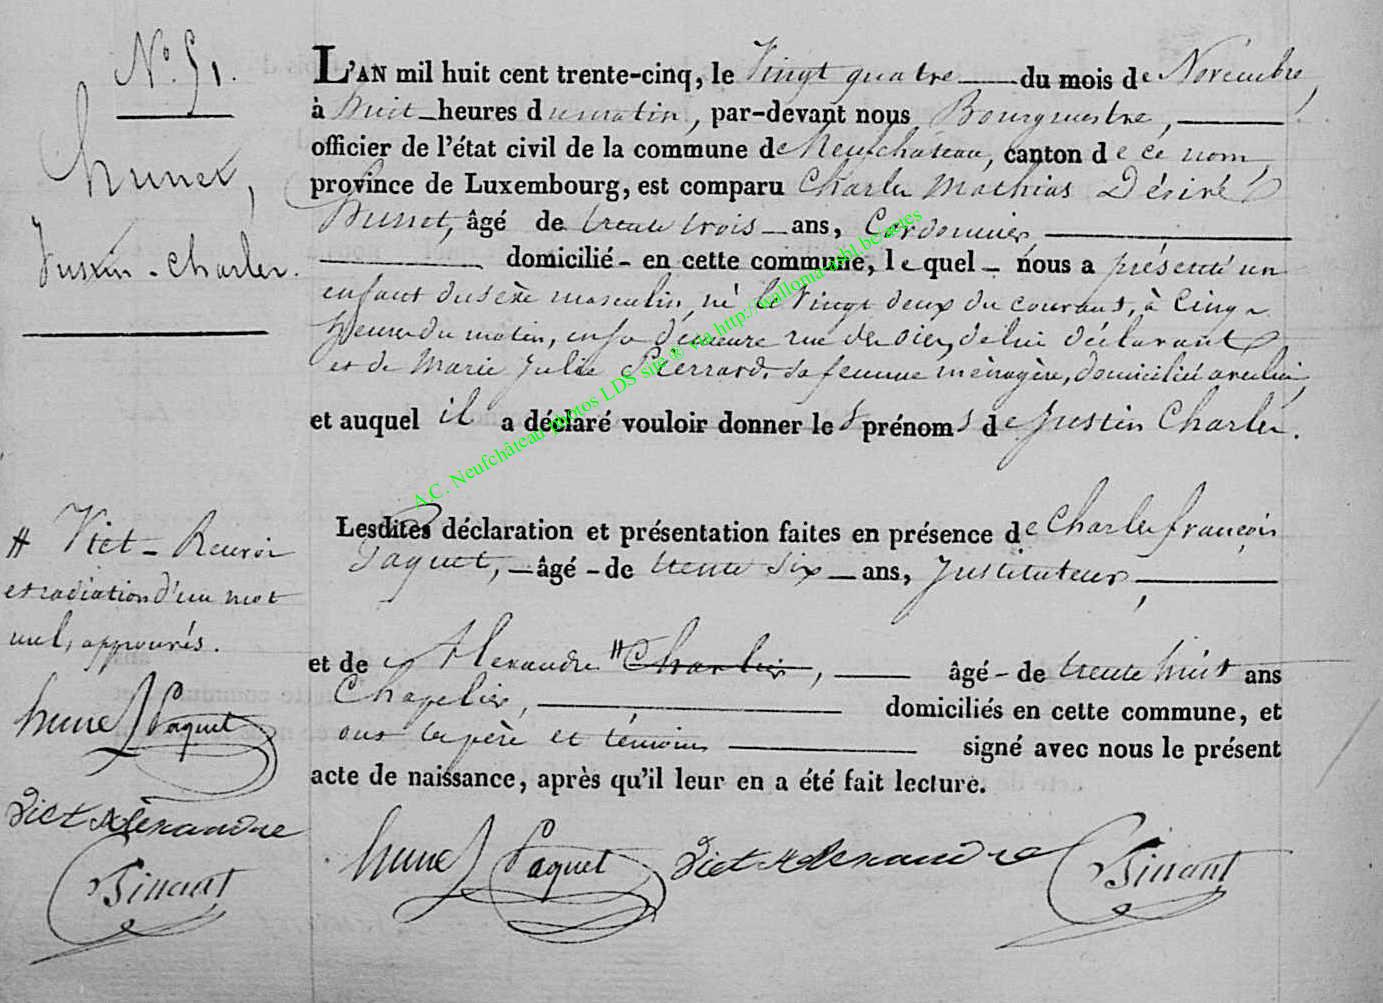 N° 51.
hunet,
Justin - Charles.
L'AN mil huit cent trente-cinq, le Vingt quatre du mois de Novembre,
à huit heures du matin, par-devant nous Bourgmestre,
officier de l'état civil de la commune de Neufchateau, canton de ce nom,
province de Luxembourg, est comparu Charles Mathias Désiré
hunet, âgé de trente trois ans, Cordonnier,
domicilié en cette commune, lequel nous a présenté un
enfant du sexe masculin, né le vingt deux du courant, à cinq
heures du matin, en sa demeure rue de de lui déclarant
et de Marie Julie Pierrard, sa femme ménagère, domiciliée avec lui,
et auquel il a déclaré vouloir donner les prénoms de Justin Charles.
Lesdites déclaration et présentation faites en présence de Charles françois
Paquet, âgé de trente six ans, Instituteur,
et de Alexandre # Charlier, âgé de trente huit ans
Chapelier, domiciliés en cette commune, et
ont le père et témoins signé avec nous le présent
acte de naissance, après qu'il leur en a été fait lecture.
# Dict - Renvoi
et radiation d'un mot
nul, approuvés.
hunet Paquet
Dict Alexandre
Binant
hunet Paquet Dict Alexandre Binant
A.C. Neufchâteau photos LDS site ® via http://wallonia-asbl.be/actes